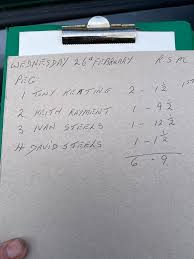 WEDNESDAY 26th FEBRUARY R.S.M.
PEG
1 TONY KEATING 2 - 1½
2 KEITH RAYMENT 1 - 9½
3 IVAN STEELS 1 - 12½
4 DAVID STEELS 1 - 1½
6 - 9